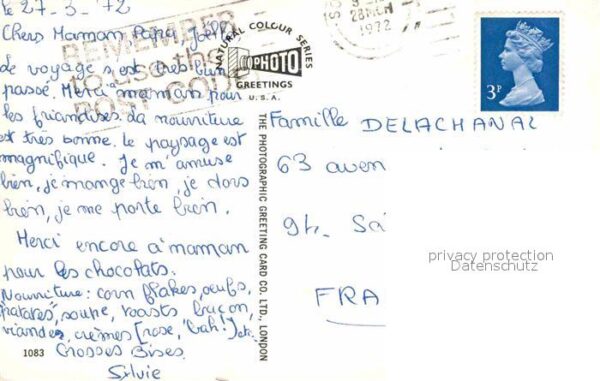 le 27-3-'72
Chers Maman Papa Joëlle
Le voyage s'est très bien
passé. Merci maman pour
les friandises. La nourriture
est très bonne. Le paysage est
magnifique. Je m'amuse
bien, je mange bien, je dors
bien, je me porte bien.
Merci encore à maman
pour les chocolats.
Nourriture: corn flakes, oeufs,
"patates", soupe, roasts, bacon,
viandes, crèmes [rose, "bah!] etc.
Grosses Bises.
Sylvie
1083
REMEMBER
to use the
POST CODE
NATURAL COLOUR SERIES
PHOTO
GREETINGS
U.S.A.
THE PHOTOGRAPHIC GREETING CARD CO. LTD., LONDON
28 MCH
1972
3P
Famille DELACHANAL
63 aven
94. Sa
FRA
privacy protection
Datenschutz